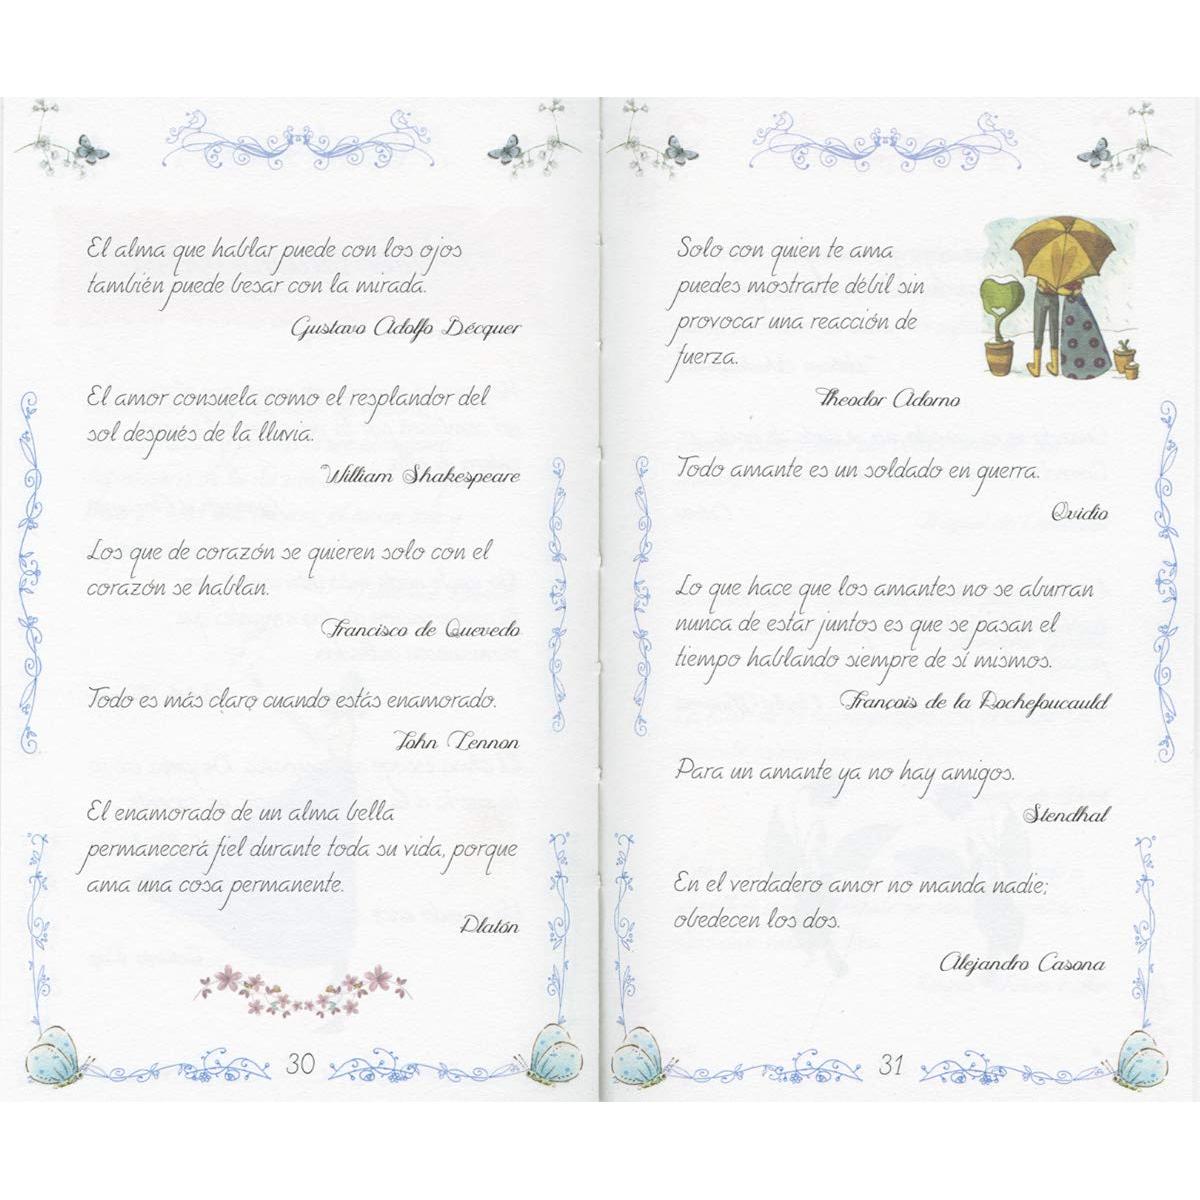 El alma que hablar puede con los ojos
también puede besar con la mirada.
Gustavo Adolfo Bécquer
El amor consuela como el resplandor del
sol después de la lluvia.
William Shakespeare
Los que de corazón se quieren solo con el
corazón se hablan.
Francisco de Quevedo
Todo es más claro cuando estás enamorado.
John Lennon
El enamorado de un alma bella
permanecerá fiel durante toda su vida, porque
ama una cosa permanente.
Platón
30
Solo con quien te ama
puedes mostrarte débil sin
provocar una reacción de
fuerza.
Theodor Adorno
Todo amante es un soldado en guerra.
Ovidio
Lo que hace que los amantes no se aburran
nunca de estar juntos es que se pasan el
tiempo hablando siempre de sí mismos.
François de la Rochefoucauld
Para un amante ya no hay amigos.
Stendhal
En el verdadero amor no manda nadie;
obedecen los dos.
Alejandro Casona
31